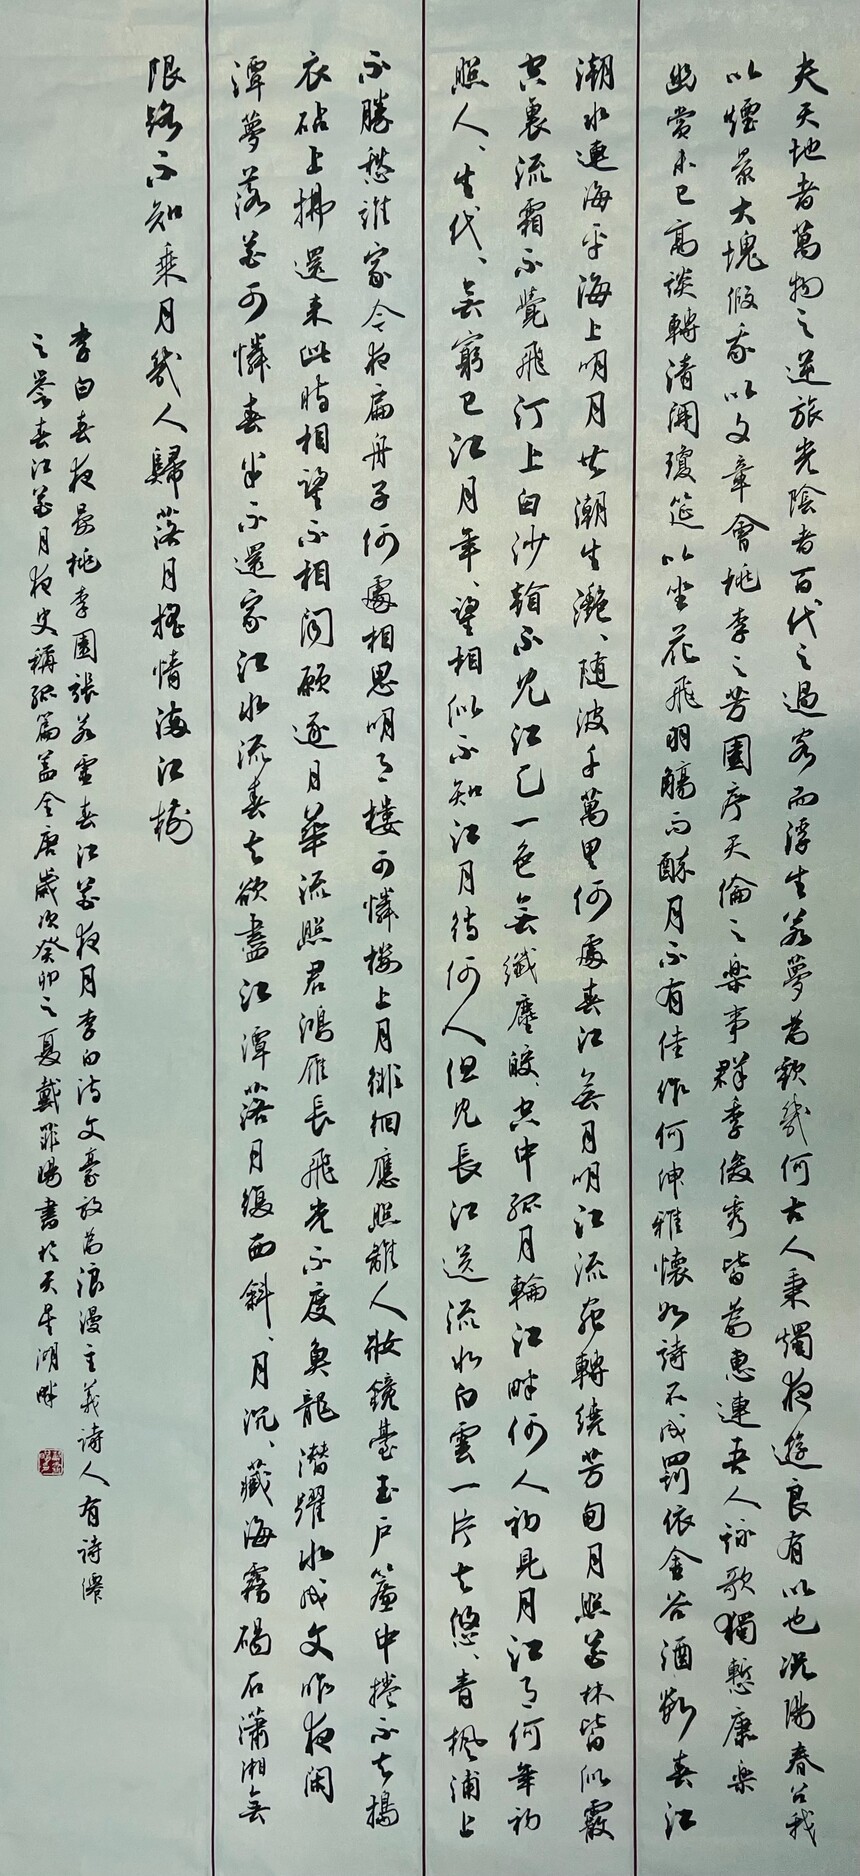 夫天地者萬物之逆旅光陰者百代之過客而浮生若夢為歡幾何古人秉燭夜遊良有以也況陽春召我
以煙景大塊假我以文章會桃李之芳園序天倫之樂事群季俊秀皆為惠連吾人詠歌獨慙康樂
幽賞未已高談轉清開瓊筵以坐花飛羽觴而醉月不有佳作何伸雅懷如詩不成罰依金谷酒數春江
潮水連海平海上明月共潮生灩、随波千萬里何處春江無月明江流宛轉繞芳甸月照花林皆似霰
空裏流霜不覺飛汀上白沙看不見江天一色無纖塵皎、空中孤月輪江畔何人初見月江月何年初
照人、生代、無窮已江月年、望相似不知江月待何人但見長江送流水白雲一片去悠、青楓浦上
不勝愁誰家今夜扁舟子何處相思明月樓可憐樓上月徘徊應照離人妝鏡臺玉戶簾中捲不去擣
衣砧上拂還來此時相望不相聞願逐月華流照君鴻雁長飛光不度魚龍潛躍水成文昨夜閑
潭夢落花可憐春半不還家江水流春去欲盡江潭落月復西斜、月沉、藏海霧碣石瀟湘無
限路不知乘月幾人歸落月搖情滿江樹
李白春夜宴桃李園張若虛春江花夜月李白詩文豪放為浪漫主義詩人有詩僊
之譽春江花月夜史稱孤篇蓋全唐歲次癸卯之夏戴陽書於天星湖畔